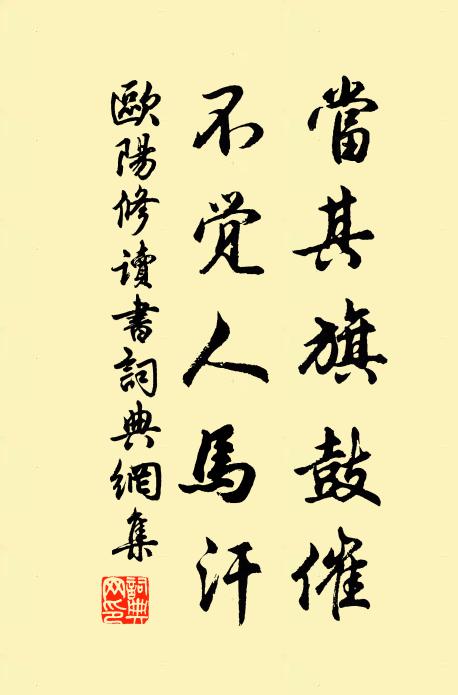 當其旗鼓催
不觉人馬汗
歐陽修讀書詞典網集
詞典
网印